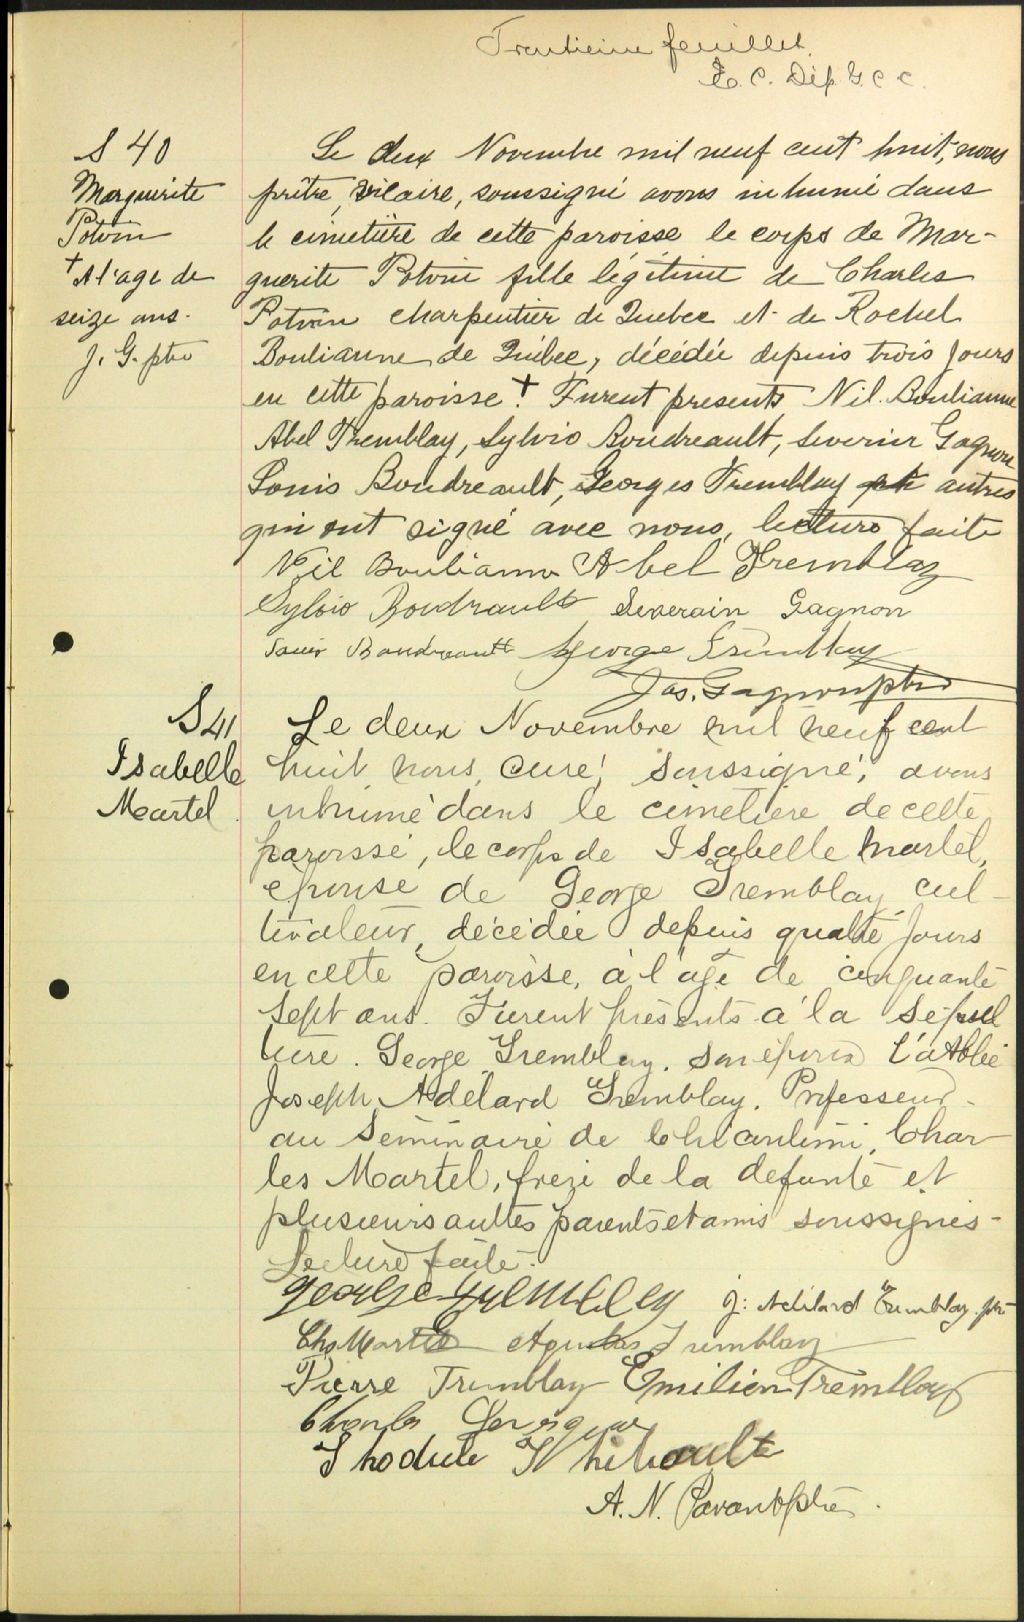 Trentieme feuillet.
L. C. Dép. G. C. C.
S 40
Marguerite
Potvin
+ A l'age de
seize ans.
J. G. ptre
Le deux Novembre mil neuf cent huit, nous
prêtre, vicaire, soussigné avons inhumé dans
le cimetière de cette paroisse le corps de Mar-
guerite Potvin fille légitime de Charles
Potvin charpentier de Quebec et de Rachel
Boulianne de Québec, décédée depuis trois jours
en cette paroisse.+ Furent presents Nil. Boulianne
Abel Tremblay, Sylvio Boudreault, Severin Gagnon
Louis Boudreault, Georges Tremblay et autres
qui ont signé avec nous, lecture faite
Neil Boulianne Abel Tremblay
Sylvio Boudrault Severain Gagnon
Louis Boudreault George Tremblay
Jos. Gagnon ptre
S 41
Isabelle
Martel
Le deux Novembre mil neuf cent
huit nous, curé, soussigné, avons
inhumé dans le cimetiere de cette
paroisse, le corps de Isabelle Martel,
épouse de George Tremblay, cul-
tivateur, décédée depuis quatre jours
en cette paroisse, à l'age de cinquante
sept ans. Furent présents à la sépul
ture. George Tremblay. son époux l'abbé
Joseph Adélard Tremblay. Professeur
au Séminaire de Chicoutimi, Char
les Martel, frere de la defunte et
plusieurs autres parents et amis soussignés-
Lecture faite.
George Tremblay J: Adélard Tremblay. ptre
Chs Martel Tremblay
Pierre Tremblay Emilien Tremblay
Charles
Thodule Thibault
A. N. Parant ptre